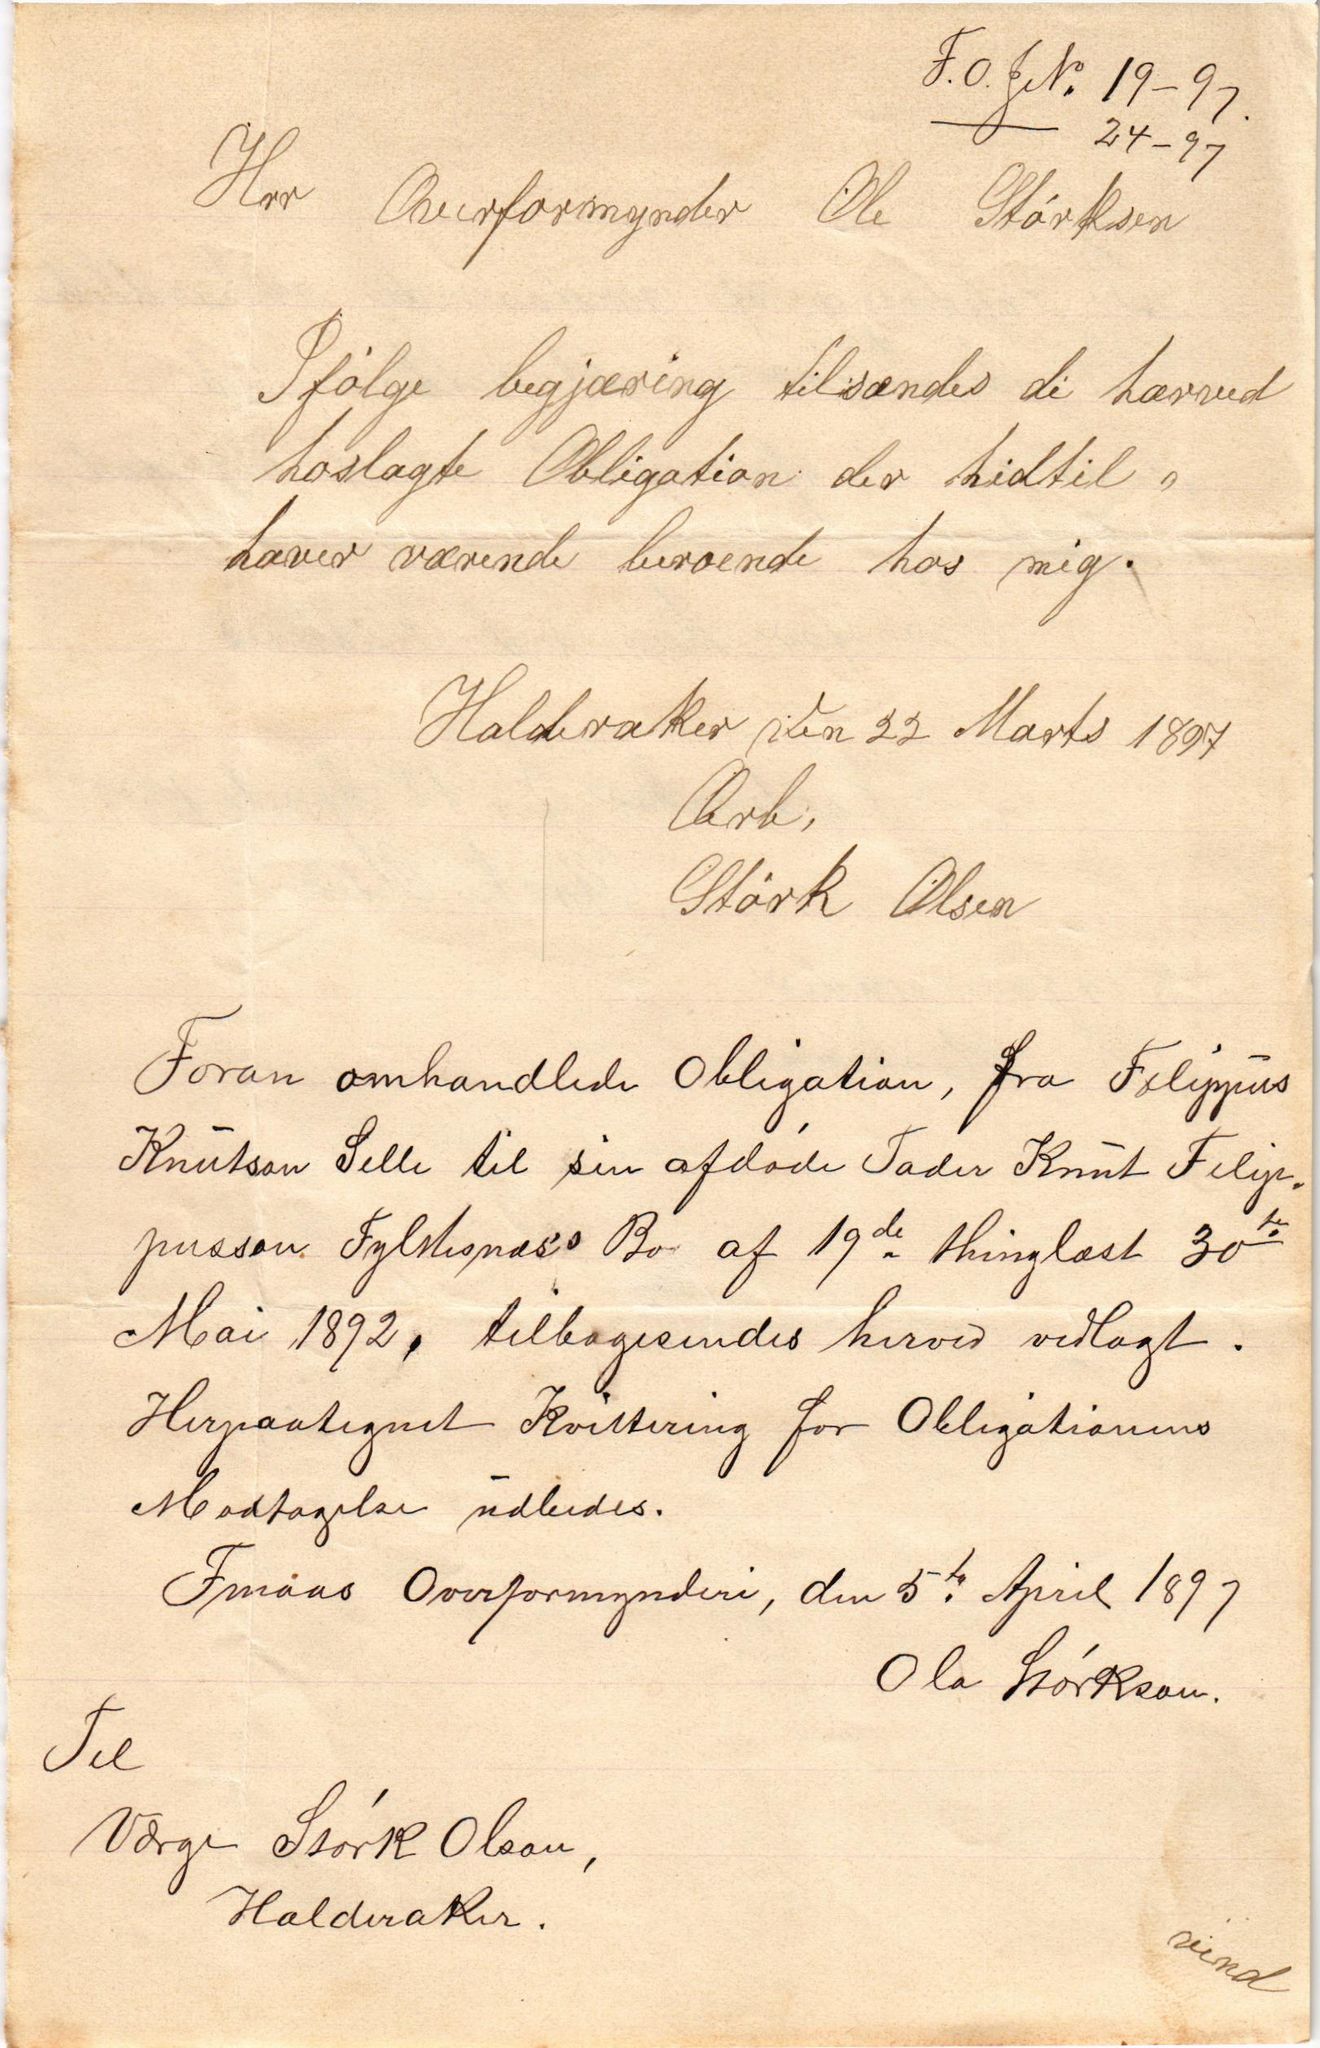 F. O. J. No. 19-97.
— 24-97
Hrr Overformynder Ole Størksen
Ifølge begjæring tilsændes di hærved
hoslagte Obligation der hidtil
haver værende beroende hos mig.
Halderaker den 22 Marts 1897
Ærb,
Størk Olsen
Foran omhandlede Obligation, fra Filippus
Knutson Selle til sin afdøde Fader Knut Filip-
pusson Fylkesnæs's Bo af 19de thinglæst 30te
Mai 1892, tilbagesendes herved vedlagt.
Herpaategnet Kvittering for Obligationens
Modtagelse udbedes.
Fmaas Overformynderi, den 5te April 1897
Ola Størkson.
Til
Værge Størk Olson,
Halderaker.
vend